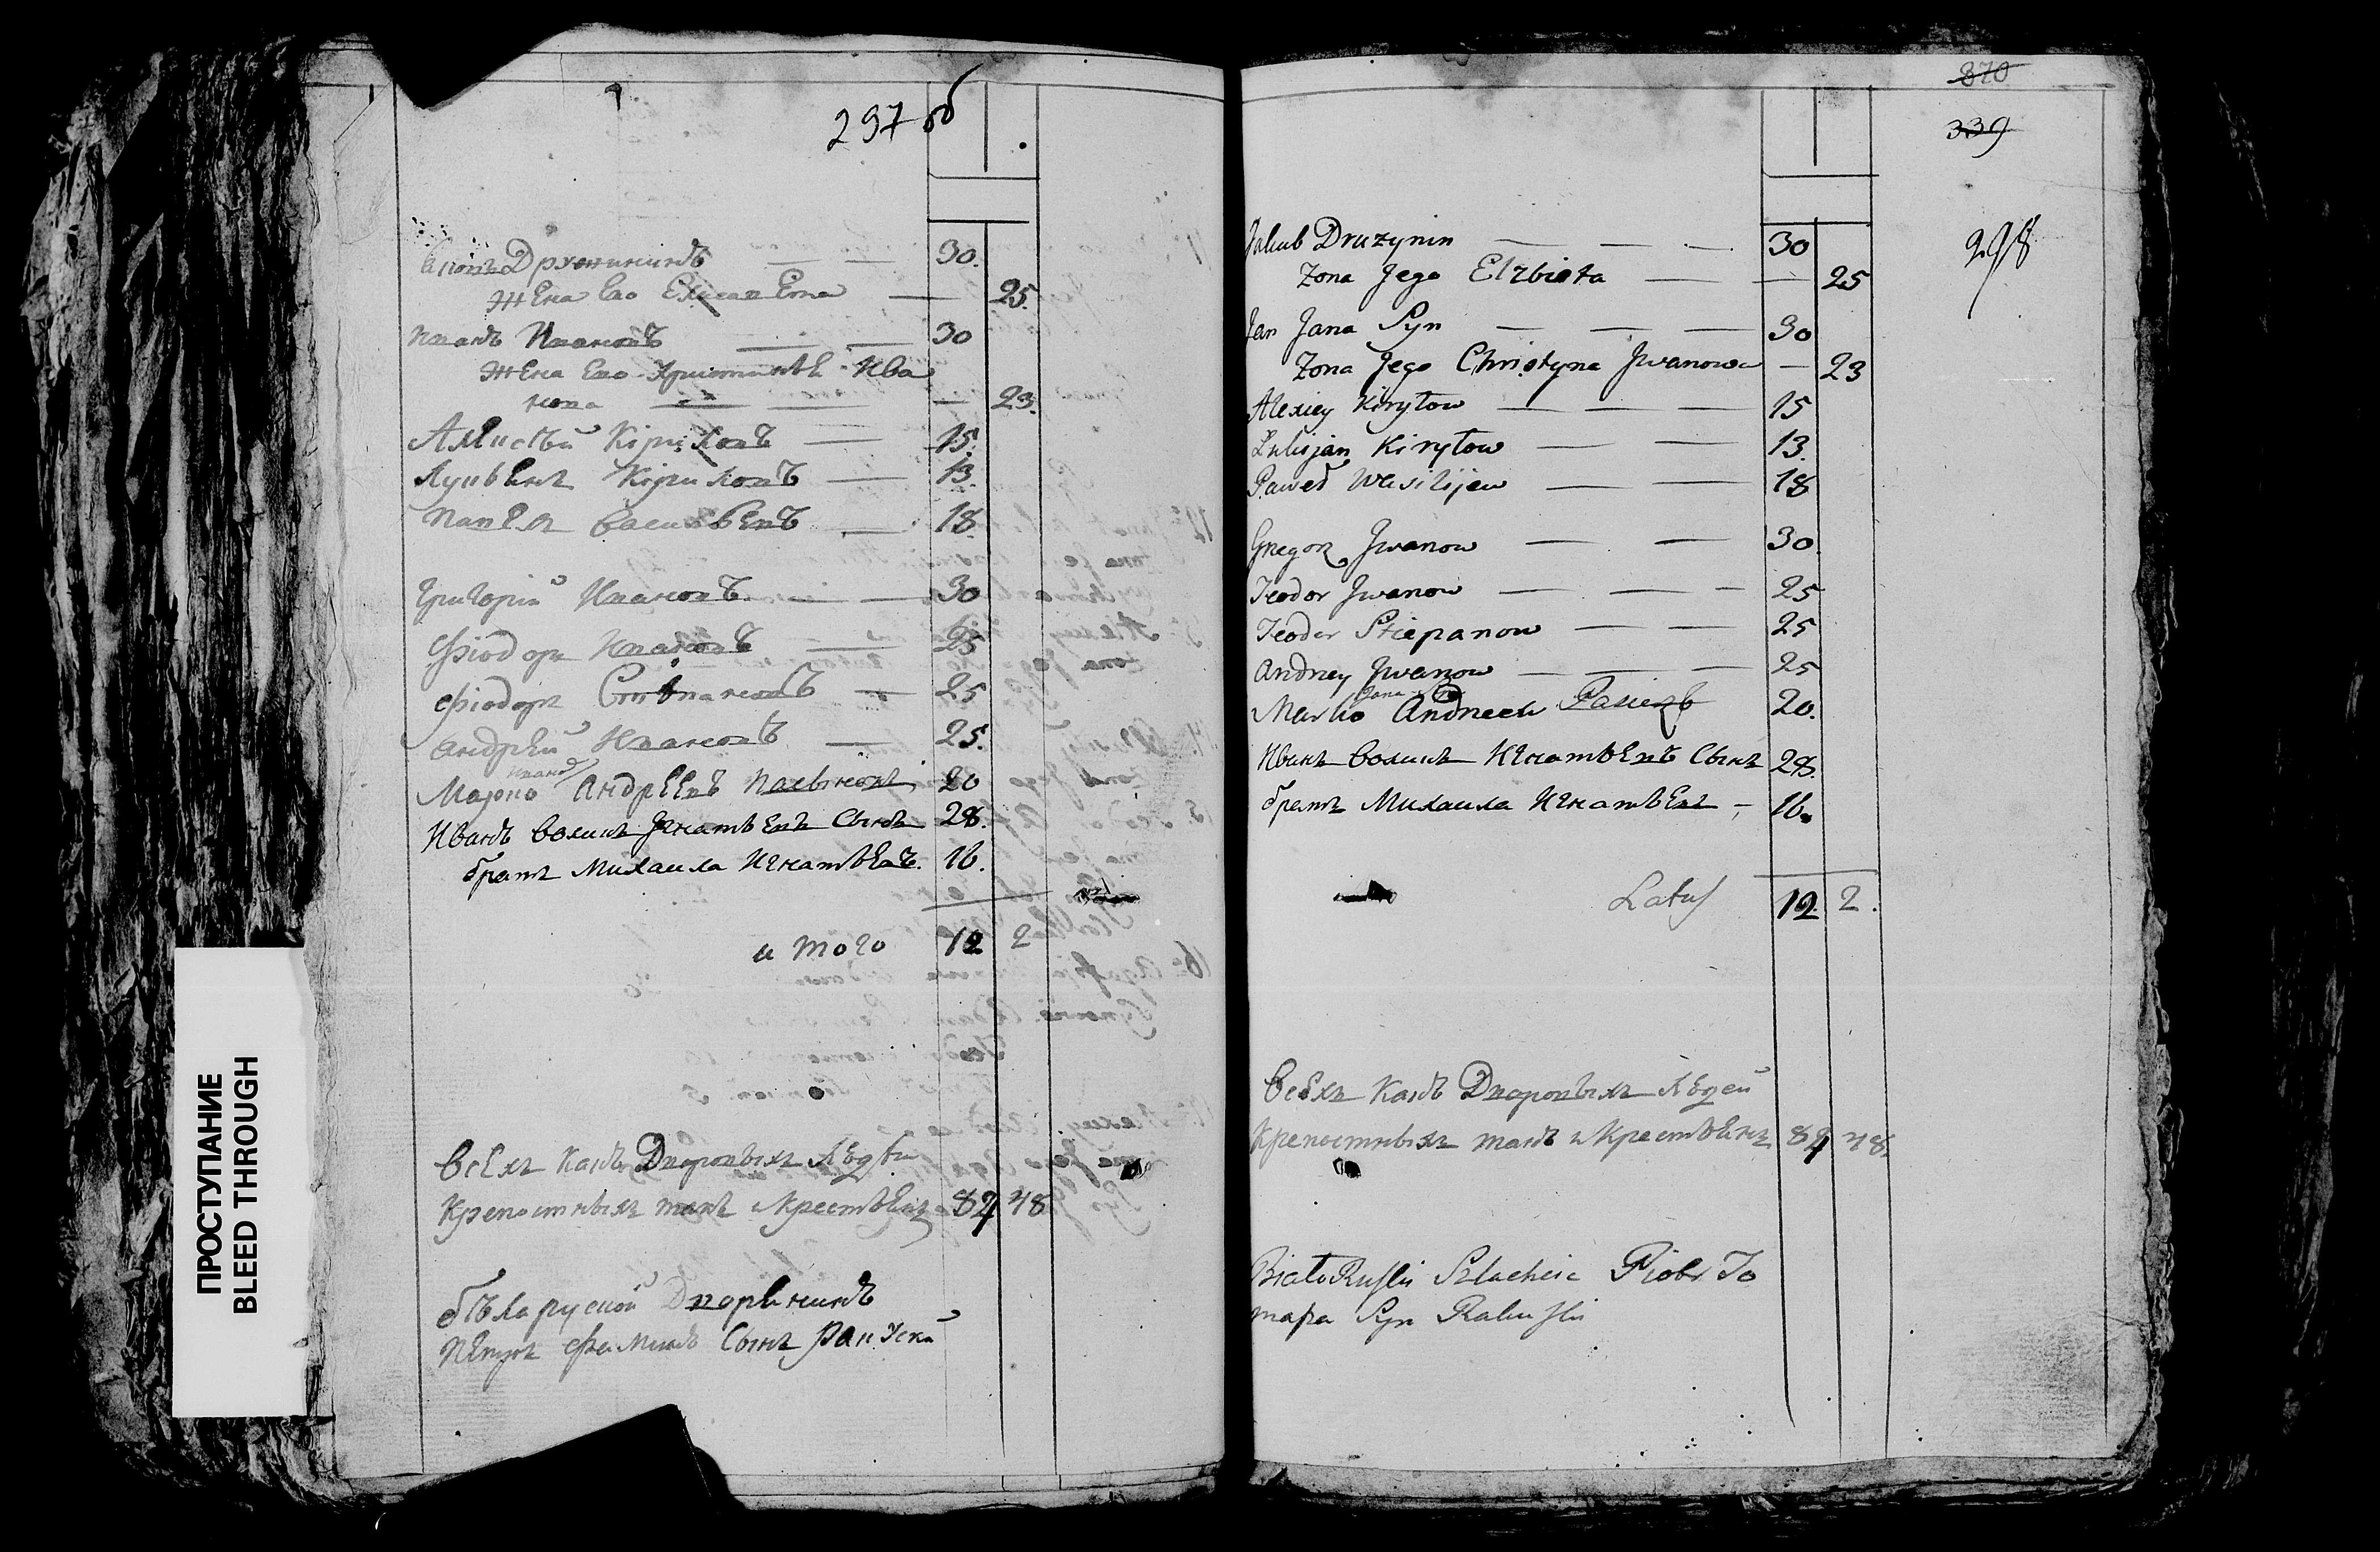 297 об
Якопъ Дружининъ — — 30.
Жена Ево Елисавета — 25.
Иванъ Ивановъ — — 30
Жена Ево Христинѣ Ива
нова — — — 23.
Алисѣй Кириловъ — 15.
Кириловъ — 13.
Павелъ Васильевъ — 18.
Григорій Ивановъ — — 30
Фіодоръ Ивановъ — 25
Фіодоръ Стіпановъ — 25
Андрей Ивановъ — 25.
Иванъ
Марко Андреевъ 20
Иванъ Волинъ Игнатьевъ Сынъ 28.
братъ Михаила Игнатьевъ. 16.
и того 12 2
Всехъ какъ Дворовыхъ
Крепостныхъ такъ и Крестьянъ 84 48
бѣларуской Дворенинъ
Петръ Сынъ
870
339
298
Jakub Druzynin — — — 30
Zona Jego Elzbieta — — 25
Jan Jana Syn — — — 30
Zona Jego Christyna Jwanowa — 23
Alexiey Kiryłow — — — 15
Kiryłow — — 13.
Paweł Wasilijew — — 18
Gregorz Jwanow — — 30
Teodor Jwanow — — — 25
Teodor Stiepanow — — 25
Andrey Jwanow — — — 25
Jana
Marko Andreew 20.
Иванъ Волинъ Игнатьевъ Сынъ 28.
братъ Михаила Игнатьевъ — 16.
Latus 12. 2.
Всехъ какъ Дворовыхъ Людей
Крепостныхъ такъ и Крестьянъ 84 48.
Białoruski Szlachcic Piotr To
masza Syn
ПРОСТУПАНИЕ
BLEED THROUGH